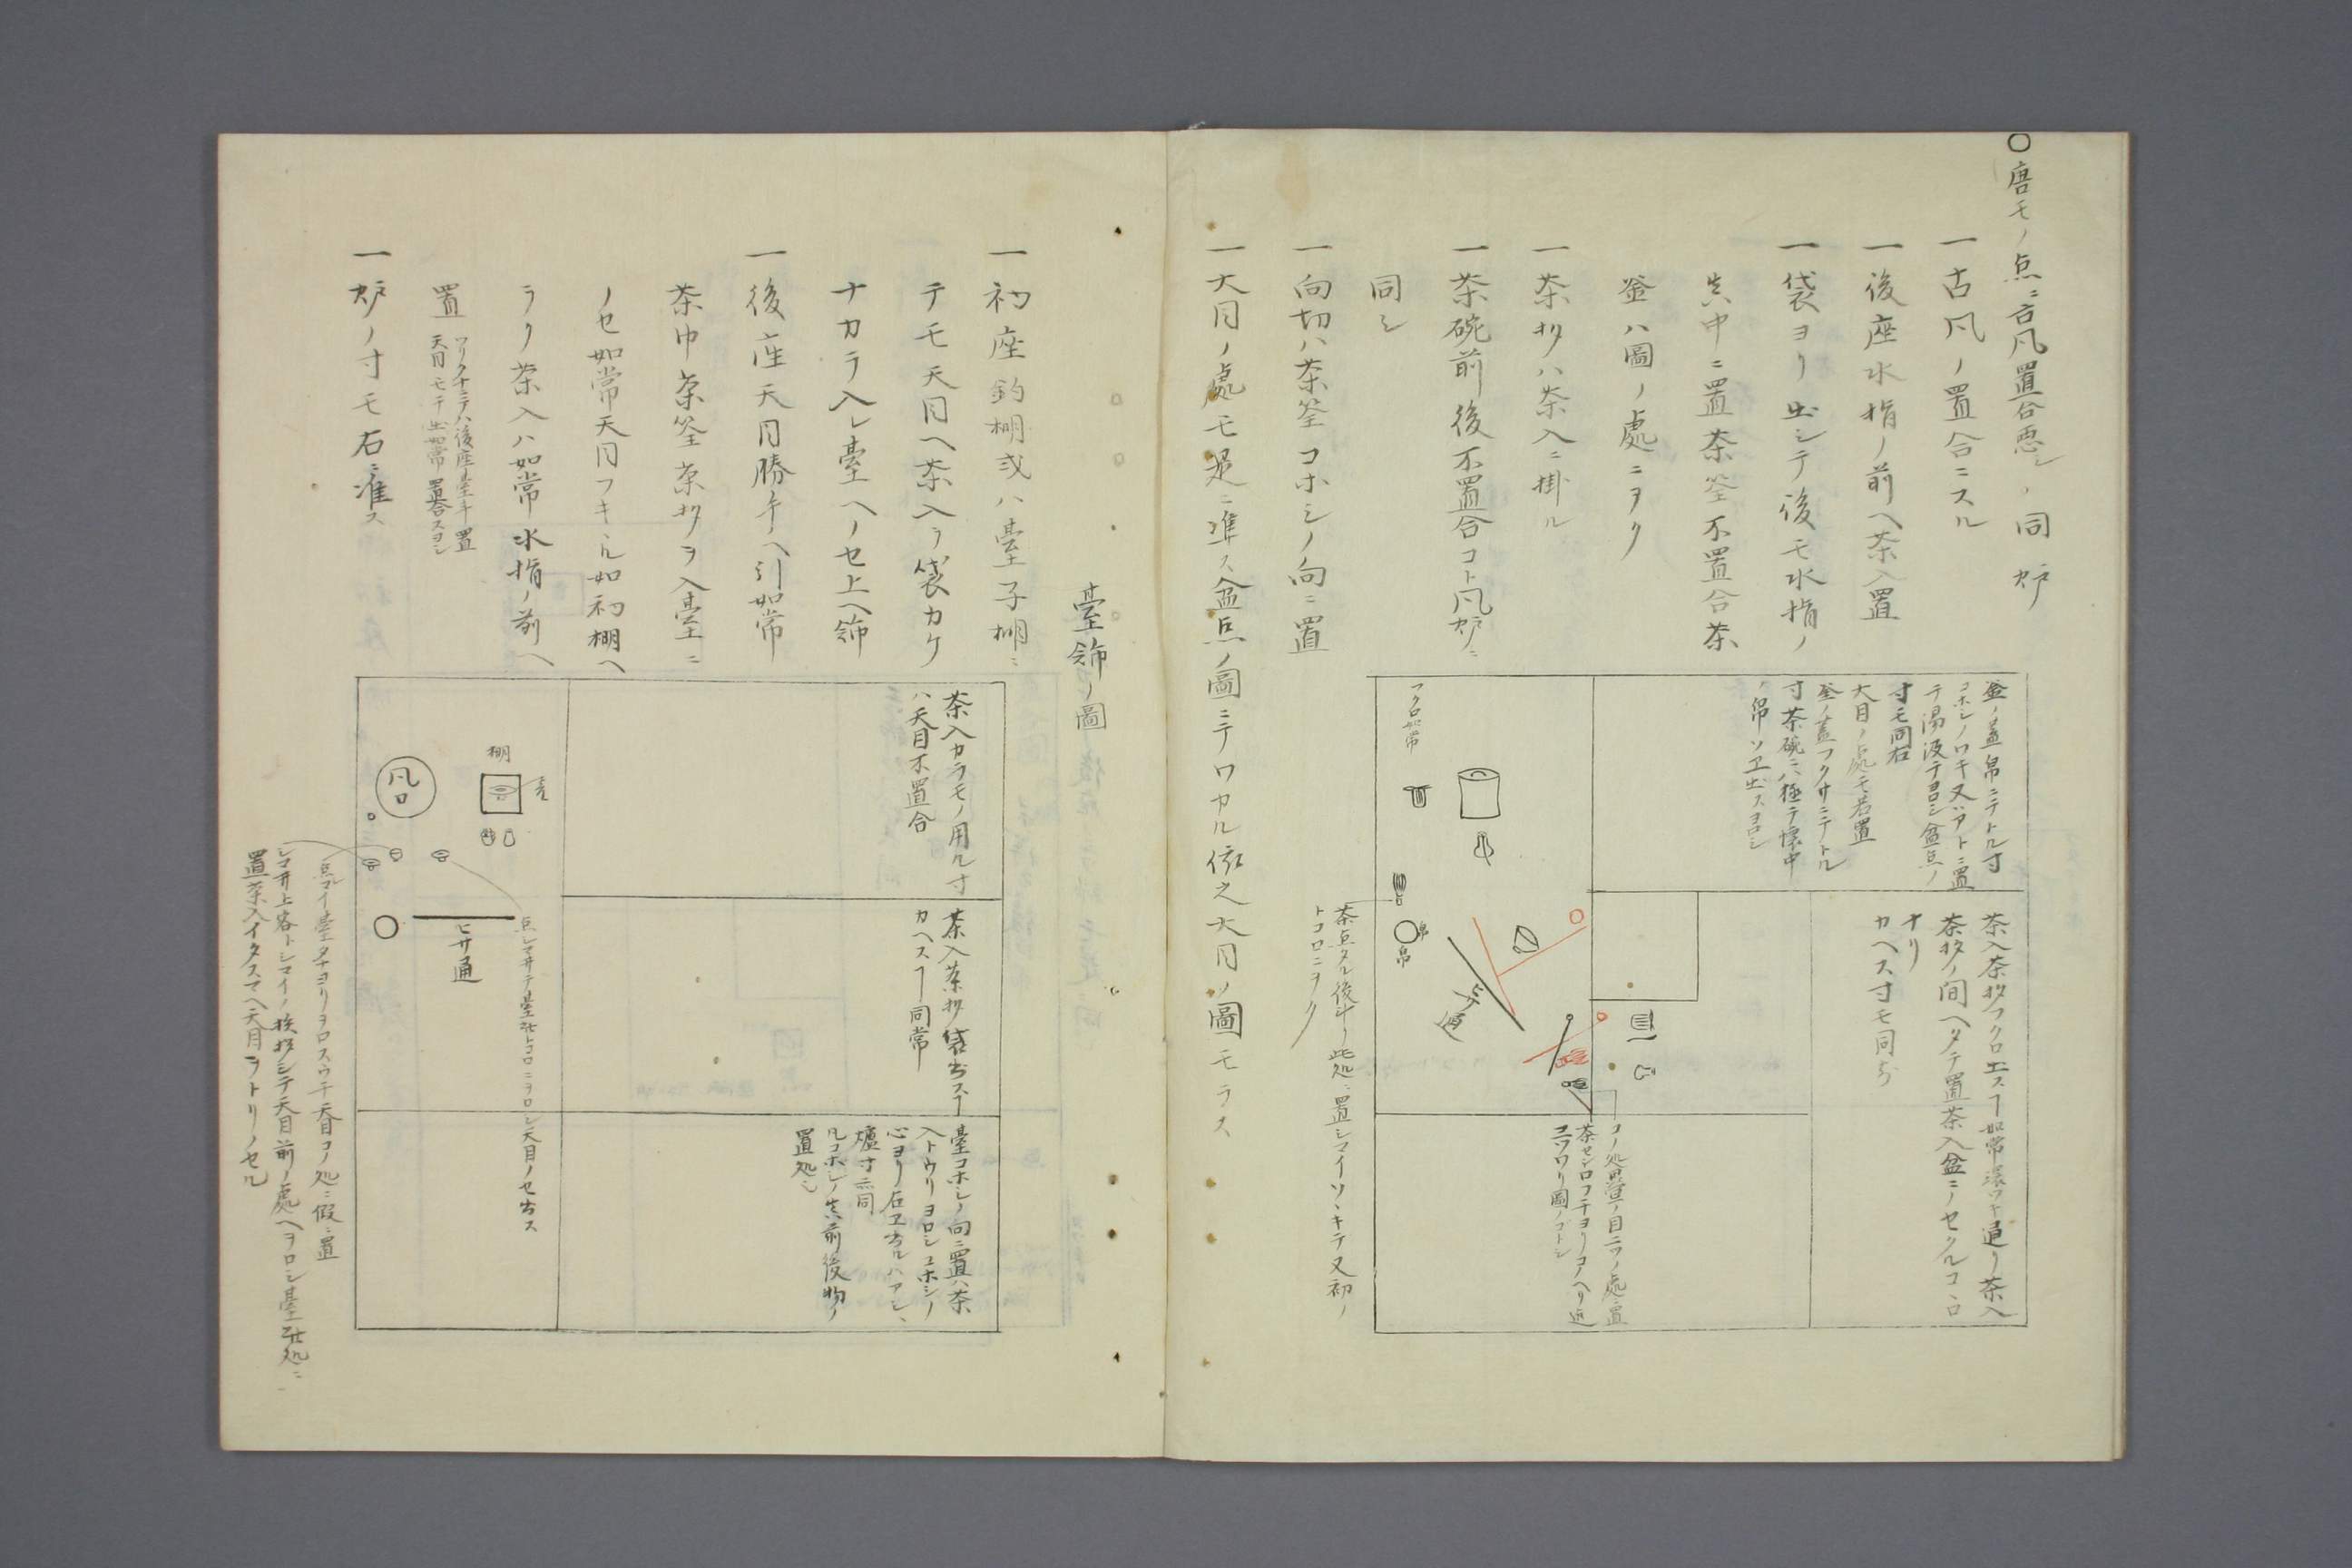 〇唐モノ点ニ古凡置合悪シ、同炉
一古凡ノ置合ニスル
一後座水指ノ前ヘ茶入置
一袋ヨリ出シテ後モ水指ノ
真中ニ置茶筌不置合茶
釜ハ圖ノ處ニヲク
一茶杓ハ茶入ニ掛ル
一茶碗前後不置合コト凡炉ニ
同シ
一向切ハ茶筌コホシノ向ニ置
一大目ノ處モ是ニ準ス盆点ノ圖ニテワカル依之大目ノ圖モラス
釜ノ蓋帛ニテトル寸
コホシノワキ又ハアトニ置
テ湯汲テヨロシ盆点ノ
寸モ同右
大目ノ点処モ若置
釜ノ蓋フクサニテトル
寸茶碗ニハ極テ懐中
ノ帛ソヱ出スヨロシ
茶入茶杓フクロ出ス丁如常
茶杓ノ間ヘタテ置茶入盆ニノセクルコヽロ
ナリ
カヘス寸モ同前
フクロ如常
帛
帛
ヒサ通
コノ処畳ノ目二ツノ處ニ置
茶点タル後
此処ニ置シマイソヽキテ又初ノ
トコロニヲク
臺餝ノ圖
一初座釣棚或ハ臺子棚ニ
テモ天目ヘ茶入ヲ袋カケ
ナカラ入レ臺ヘノセ上ヘ餝
一後座天目勝手ヘ引如常
茶巾茶筌茶杓ヲ入臺ニ
ノセ如常天目フキヽル如初棚ヘ
ラク茶入ハ如常水指ノ前ヘ
置
ツリタナニテハ後座臺斗置
天目モチ出如常置合スヨシ
一炉ノ寸モ右ニ准ス
茶入カラモノ用ル寸
ハ天目不置合
茶入茶杓袋出ス丁
カヘス丁同常
臺コホシノ向ニ置ハ茶
入トウリヨロシコホシノ
心ヨリ右エ出ルハアシヽ
爐寸ニ同
凡コホシノ真前後物ノ
置処シ
棚
凡
ロ
ヒサ通
点シマイ臺タナヨリヲロスウチ天目コノ処ニ假ニ置
置茶入イタスマヘ天目ヲトリノセル